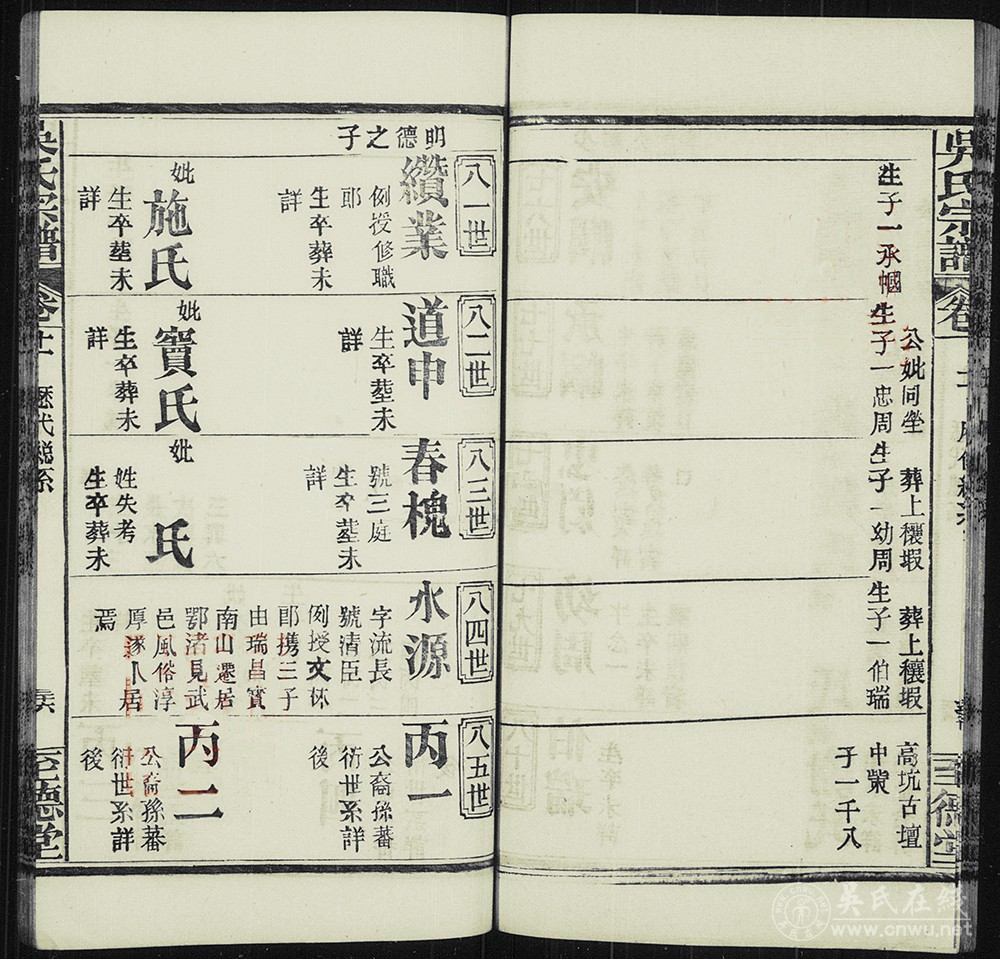 吳氏宗譜
卷
生子一承幗
公妣同塋
生子一忠周
葬上穰塅
生子一幼周
葬上穰塅
生子一伯瑞
高坑古壇
中棠
子一千八
明德之子
八一世
纘業
例授修職
郎
生卒葬未
詳
妣
施氏
生卒塟未
詳
八二世
道申
生卒塟未
詳
妣
竇氏
生卒葬未
詳
八三世
春槐
號三庭
生卒塟未
詳
妣
氏
姓失考
生卒葬未
八四世
水源
字流長
號清臣
例授文林
郎携三子
由瑞昌實
南山遷居
鄂渚見武
邑風俗淳
厚遂卜居
焉
八五世
丙一
公裔孫蕃
衍世系詳
後
丙二
公裔孫蕃
衍世系詳
後
吳氏宗譜
卷廿一
歷代總系
至德堂
吳氏在线
www.cnwu.net